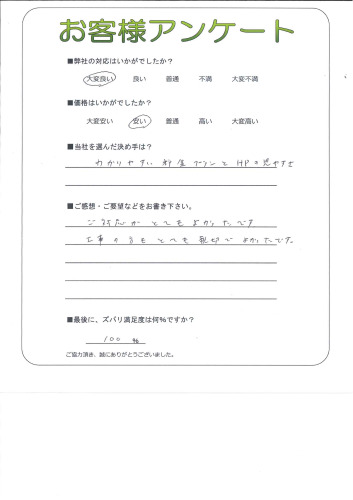 お客様アンケート
■弊社の対応はいかがでしたか？
大変良い 良い 普通 不満 大変不満
■価格はいかがでしたか？
大変安い 安い 普通 高い 大変高い
■当社を選んだ決め手は？
わかりやすい料金プランとHPの見やすさ
■ご感想・ご要望などをお書き下さい。
ご対応がとてもよかったです
工事の方もとても親切でよかったです。
■最後に、ズバリ満足度は何%ですか？
100 %
ご協力頂き、誠にありがとうございました。